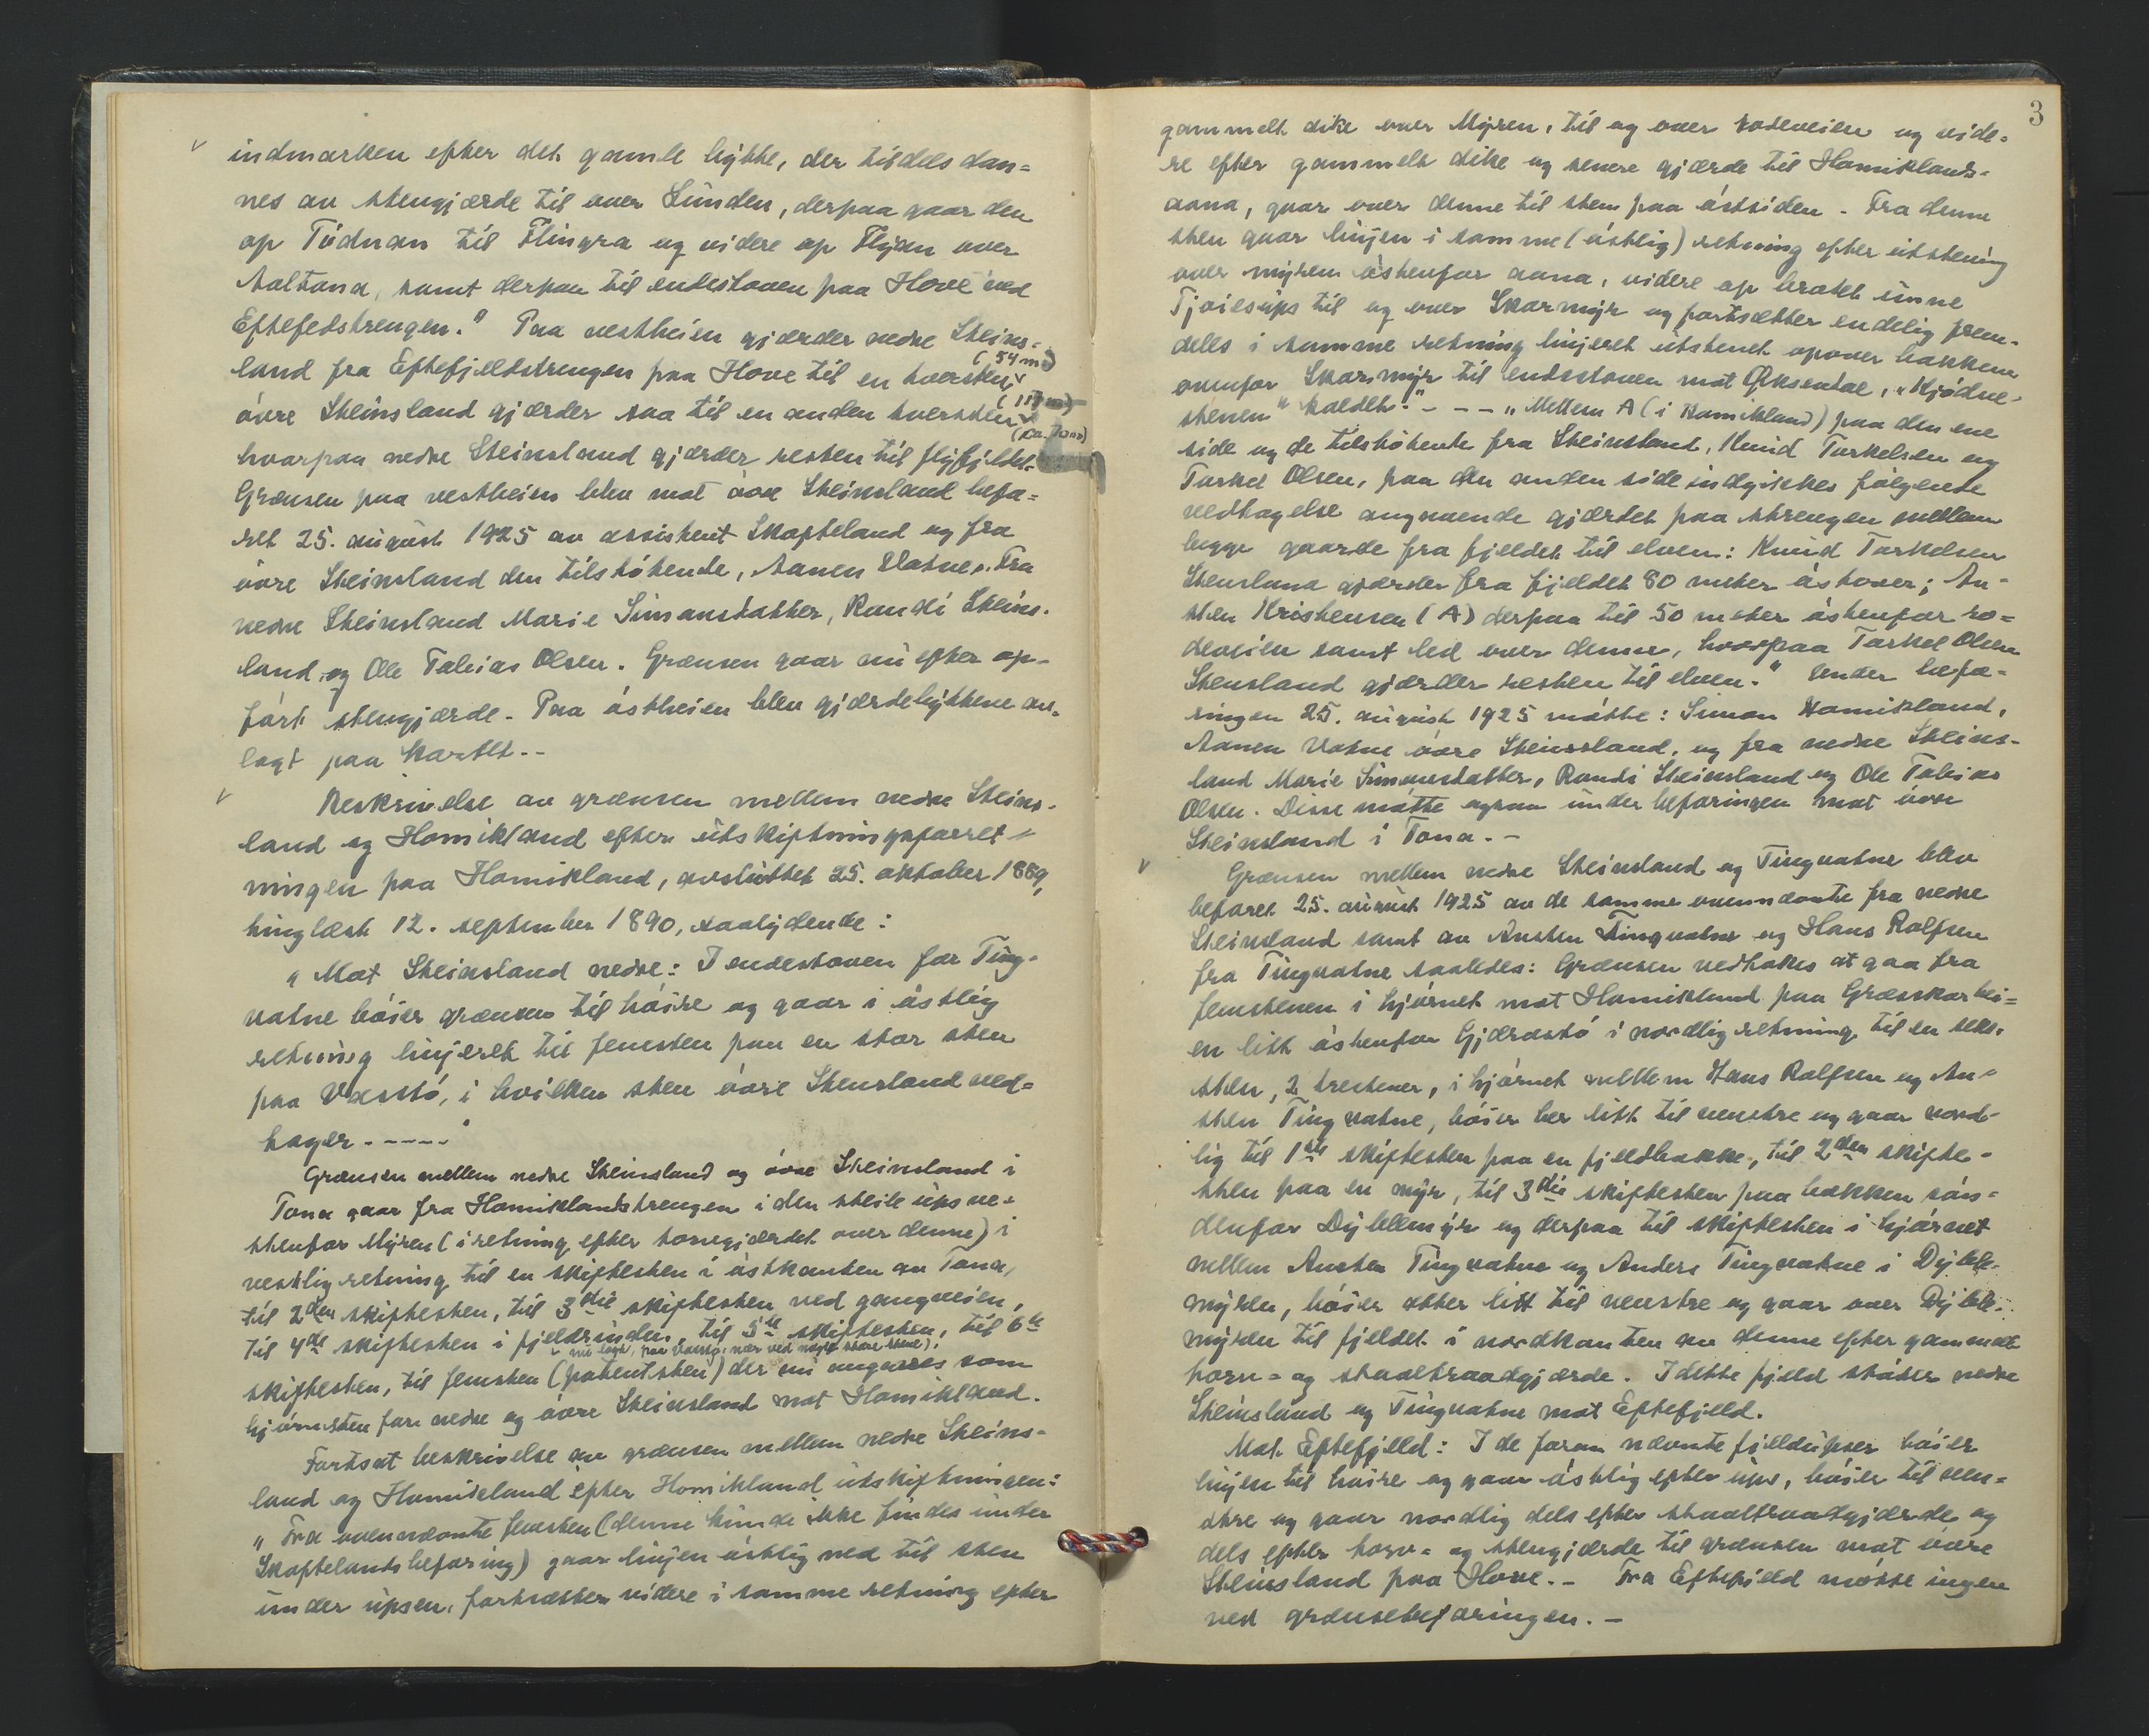 indmarken efter det gamle bytte, der tildels dan=
nes av stengjærde til over Lunden, derpaa gaar den
op Tødnan til Flingra og videre op Flyan over
Aaltona, samt derpaa til endestoven paa Hove ved
Eftefedstrengen." Paa vestheien gjærder nedre Steins=
(54 m)
land fra Eftefjeldstrengen paa Hove til en kversten,
(117 m)
øvre Steinsland gjærder saa til en anden kversten
hvorpaa nedre Steinsland gjærder resten til flyfjeldet.
Grænsen paa vestheien blev mot øvre Steinsland befa=
ret 25. august 1925 av assistent Skofteland og fra
øvre Steinsland den tilstøtende, Aanen Vatne. Fra
nedre Steinsland Marie Simonstatter, Randi Steins=
land, og Ole Tobias Olsen. Grænsen gaar nu efter op=
ført stengjærde. Paa østheien blev gjærdebyttene an=
lagt paa kartet. -
Beskrivelse av grænsen mellem nedre Steins=
land og Homikland efter utskiftningsforret=
ningen paa Homikland, avsluttet 25. oktober 1889,
tinglæst 12. september 1890, saalydende:
„Mot Steinsland nedre: I endestoven for Ting=
vatne bøier grænsen til høire og gaar i østlig
retning linjeret til femsten paa en stor sten
paa Vasstø, i hvilken sten øvre Stensland ved=
tager. - - - - -"
Grænsen mellem nedre Steinsland og øvre Steinsland i
Tona gaar fra Homiklandstrengen i den steile ups ve=
stenfor Myren (i retning efter torvegjærdet over denne) i
vestlig retning til en skiftesten i østkanten av Tona,
til 2den skiftesten, til 3die skiftesten ved gangveien,
til 4de skiftesten i fjeldrinden, til 5te skiftesten, til 6te
nu lagt, paa Vasstø, nær ved nogle store stene).
skiftesten, til femsten (patentsten) der nu ansees som
hjørnesten for nedre og øvre Steinsland mot Homikland.
Fortsat beskrivelse av grænsen mellem nedre Steins=
land og Homikland efter Homikland utskiftningen:
„Fra ovennævnte femsten (denne kunde ikke findes under
Skoftelands befaring) gaar linjen østlig ned til sten
under upsen, fortsætter videre i samme retning efter
3
gammelt dike over Myren, til og over rodeveien og vide=
re efter gammelt dike og senere gjærde til Homiklands=
aana, gaar over denne til sten paa østsiden. Fra denne
sten gaar linjen i samme (østlig) retning efter utstening
over myren østenfor aana, videre op brattet unne
Tjoiesups til og over Skarmyr og fortsætter endelig frem=
deles i samme retning linjeret utstenet opover bakken
ovenfor Skarmyr til endestoven mot Øksendal, „Kjødne=
stenen" kaldet." - - - „Mellem A (i Homikland) paa den ene
side og de tilstøtende fra Steinsland, Knud Torkelsen og
Torkel Olsen, paa den anden side indgikkes følgende
vedtagelse angaaende gjærdet paa strengen mellem
begge gaarde fra fjeldet til elven: Knud Torkelsen
Stensland gjærder fra fjeldet 80 meter østover; An=
sten Kristensen (A) derpaa til 50 meter østenfor ro=
deveien samt led over denne, hvorpaa Torkel Olsen
Stensland gjærder resten til elven." Under befa=
ringen 25. august 1925 møtte: Simon Homikland,
Aanen Vatne øvre Steinsland, og fra nedre Steins=
land Marie Simonstatter, Randi Steinsland og Ole Tobias
Olsen. Disse møtte ogsaa under befaringen mot øvre
Steinsland i Tona. -
Grænsen mellem nedre Steinsland og Tingvatne blev
befaret 25. august 1925 av de samme ovennævnte fra nedre
Steinsland samt av Ansten Tingvatne og Hans Rolfsen
fra Tingvatne saaledes: Grænsen vedtokes at gaa fra
femstenen i hjørnet mot Homikland paa Græsskarhei=
en litt østenfor Gjærastø i nordlig retning til en seks=
sten, 2 trestener, i hjørnet mellem Hans Rolfsen og An=
sten Tingvatne, bøier her litt til venstre og gaar nord=
lig til 1ste skiftesten paa en fjeldbakke, til 2den skifte=
sten paa en myr, til 3die skiftesten paa bakken søn=
denfor Dybllemyr og derpaa til skiftesten i hjørnet
mellem Ansten Tingvatne og Anders Tingvatne i Dyble=
myren, bøier atter litt til venstre og gaar over Dyble=
myren til fjeldet i nordkanten av denne efter gammelt
torv= og staaltraadgjærde. I dette fjeld støter nedre
Steinsland og Tingvatne mot Eftefjeld.
Mot Eftefjeld: I de foran nævnte fjeldupser bøier
linjen til høire og gaar østlig efter ups, bøier til ven=
stre og gaar nordlig dels efter staaltraadgjærde og
dels efter torv= og stengjærde til grænsen mot øvre
Steinsland paa Hove. - Fra Eftefjeld møtte ingen
ved grænsebefaringen. -